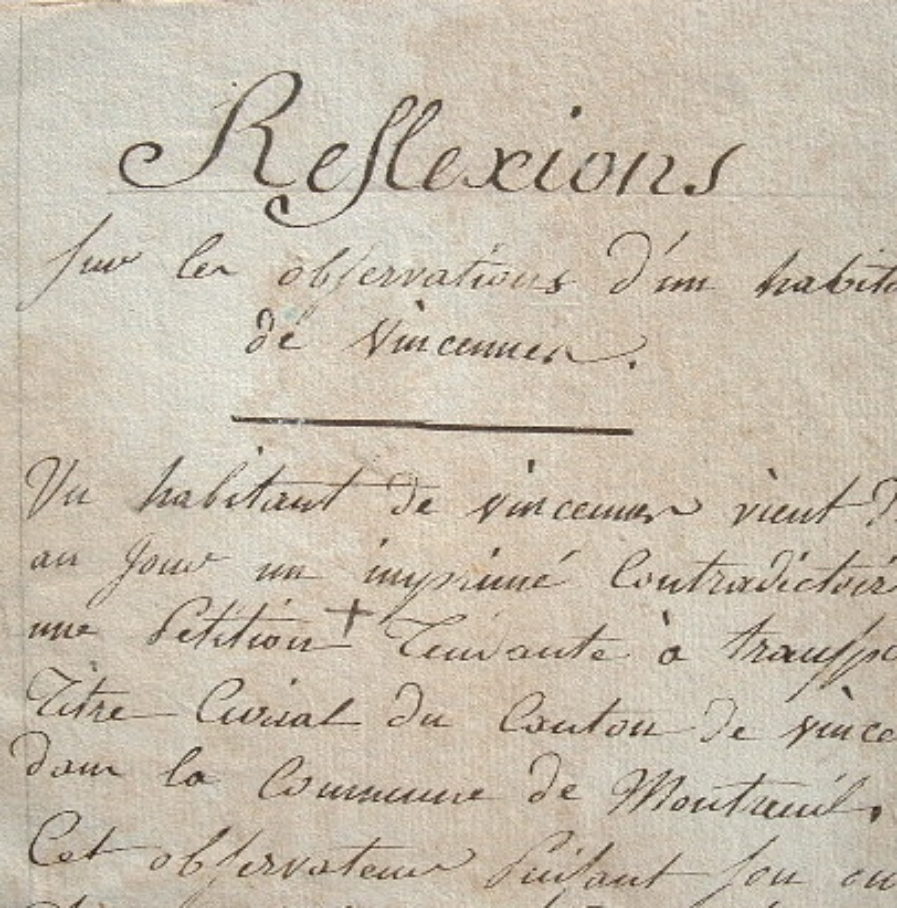 Reflexions
sur les observations d'un habita
de vincennes.
Un habitant de vincennes vient d
au jour un imprimé Contradictoir
une Petition + Tendante à transpo
Titre Curial du Canton de vince
dans la Commune de Montreuil.
Cet observateur Puisant son